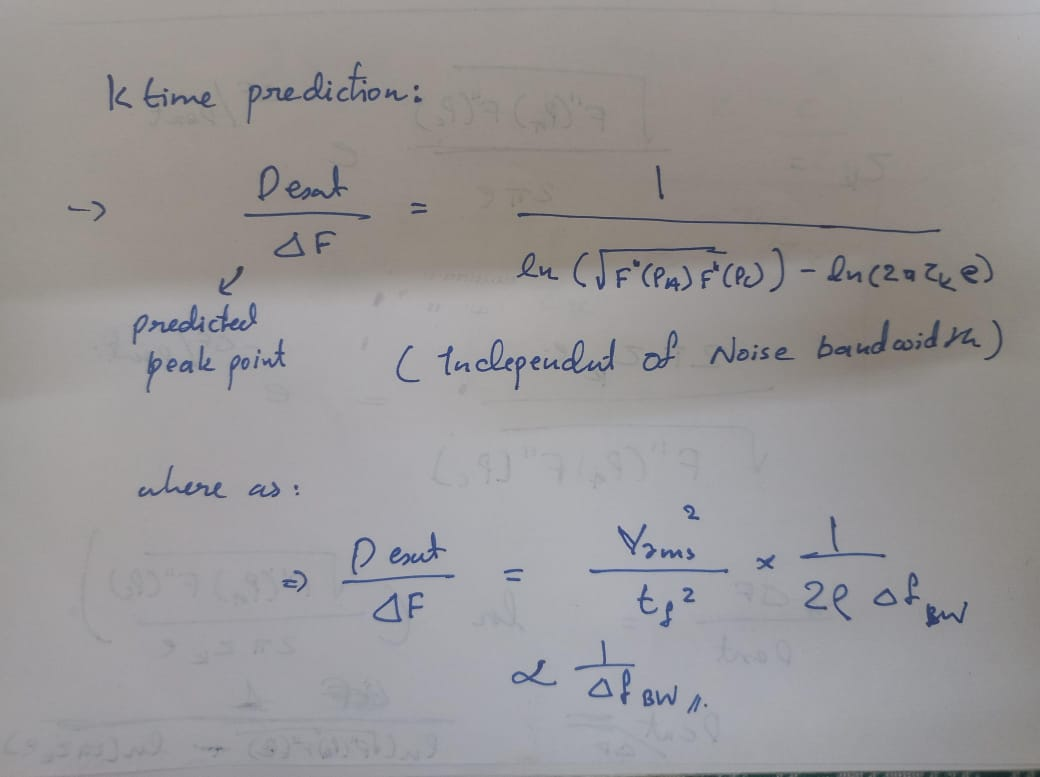 k time prediction:
→ Desat / ΔF = 1 / ln (√F"(PA) F"(Pc)) - ln(2π τk e)
predicted
peak point
( Independent of Noise bandwidth)
where as:
⇒ Dexut / ΔF = Vrms² / tf² × 1 / 2ρ Δf BW
∝ 1 / Δf BW //.